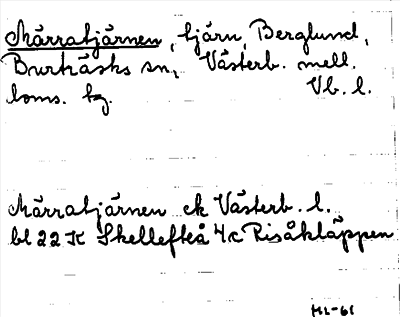 Märratjärnen, tjärn, Berglund,
Burträsks sn, Västerb. mell.
doms. tg. Vb. l.
Märratjärnen ek Västerb. l.
bl 22 K Skellefteå 4c Risåkläppen
HL-61